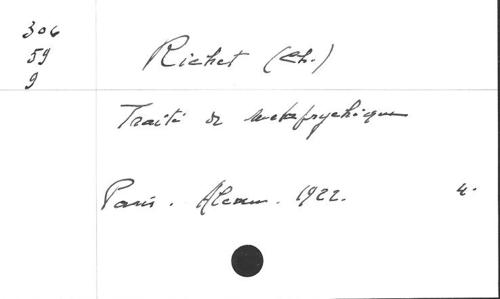 306
59
9
Richet (Ch.)
Traité de metapsychique
Paris. Alcan. 1922. 4.